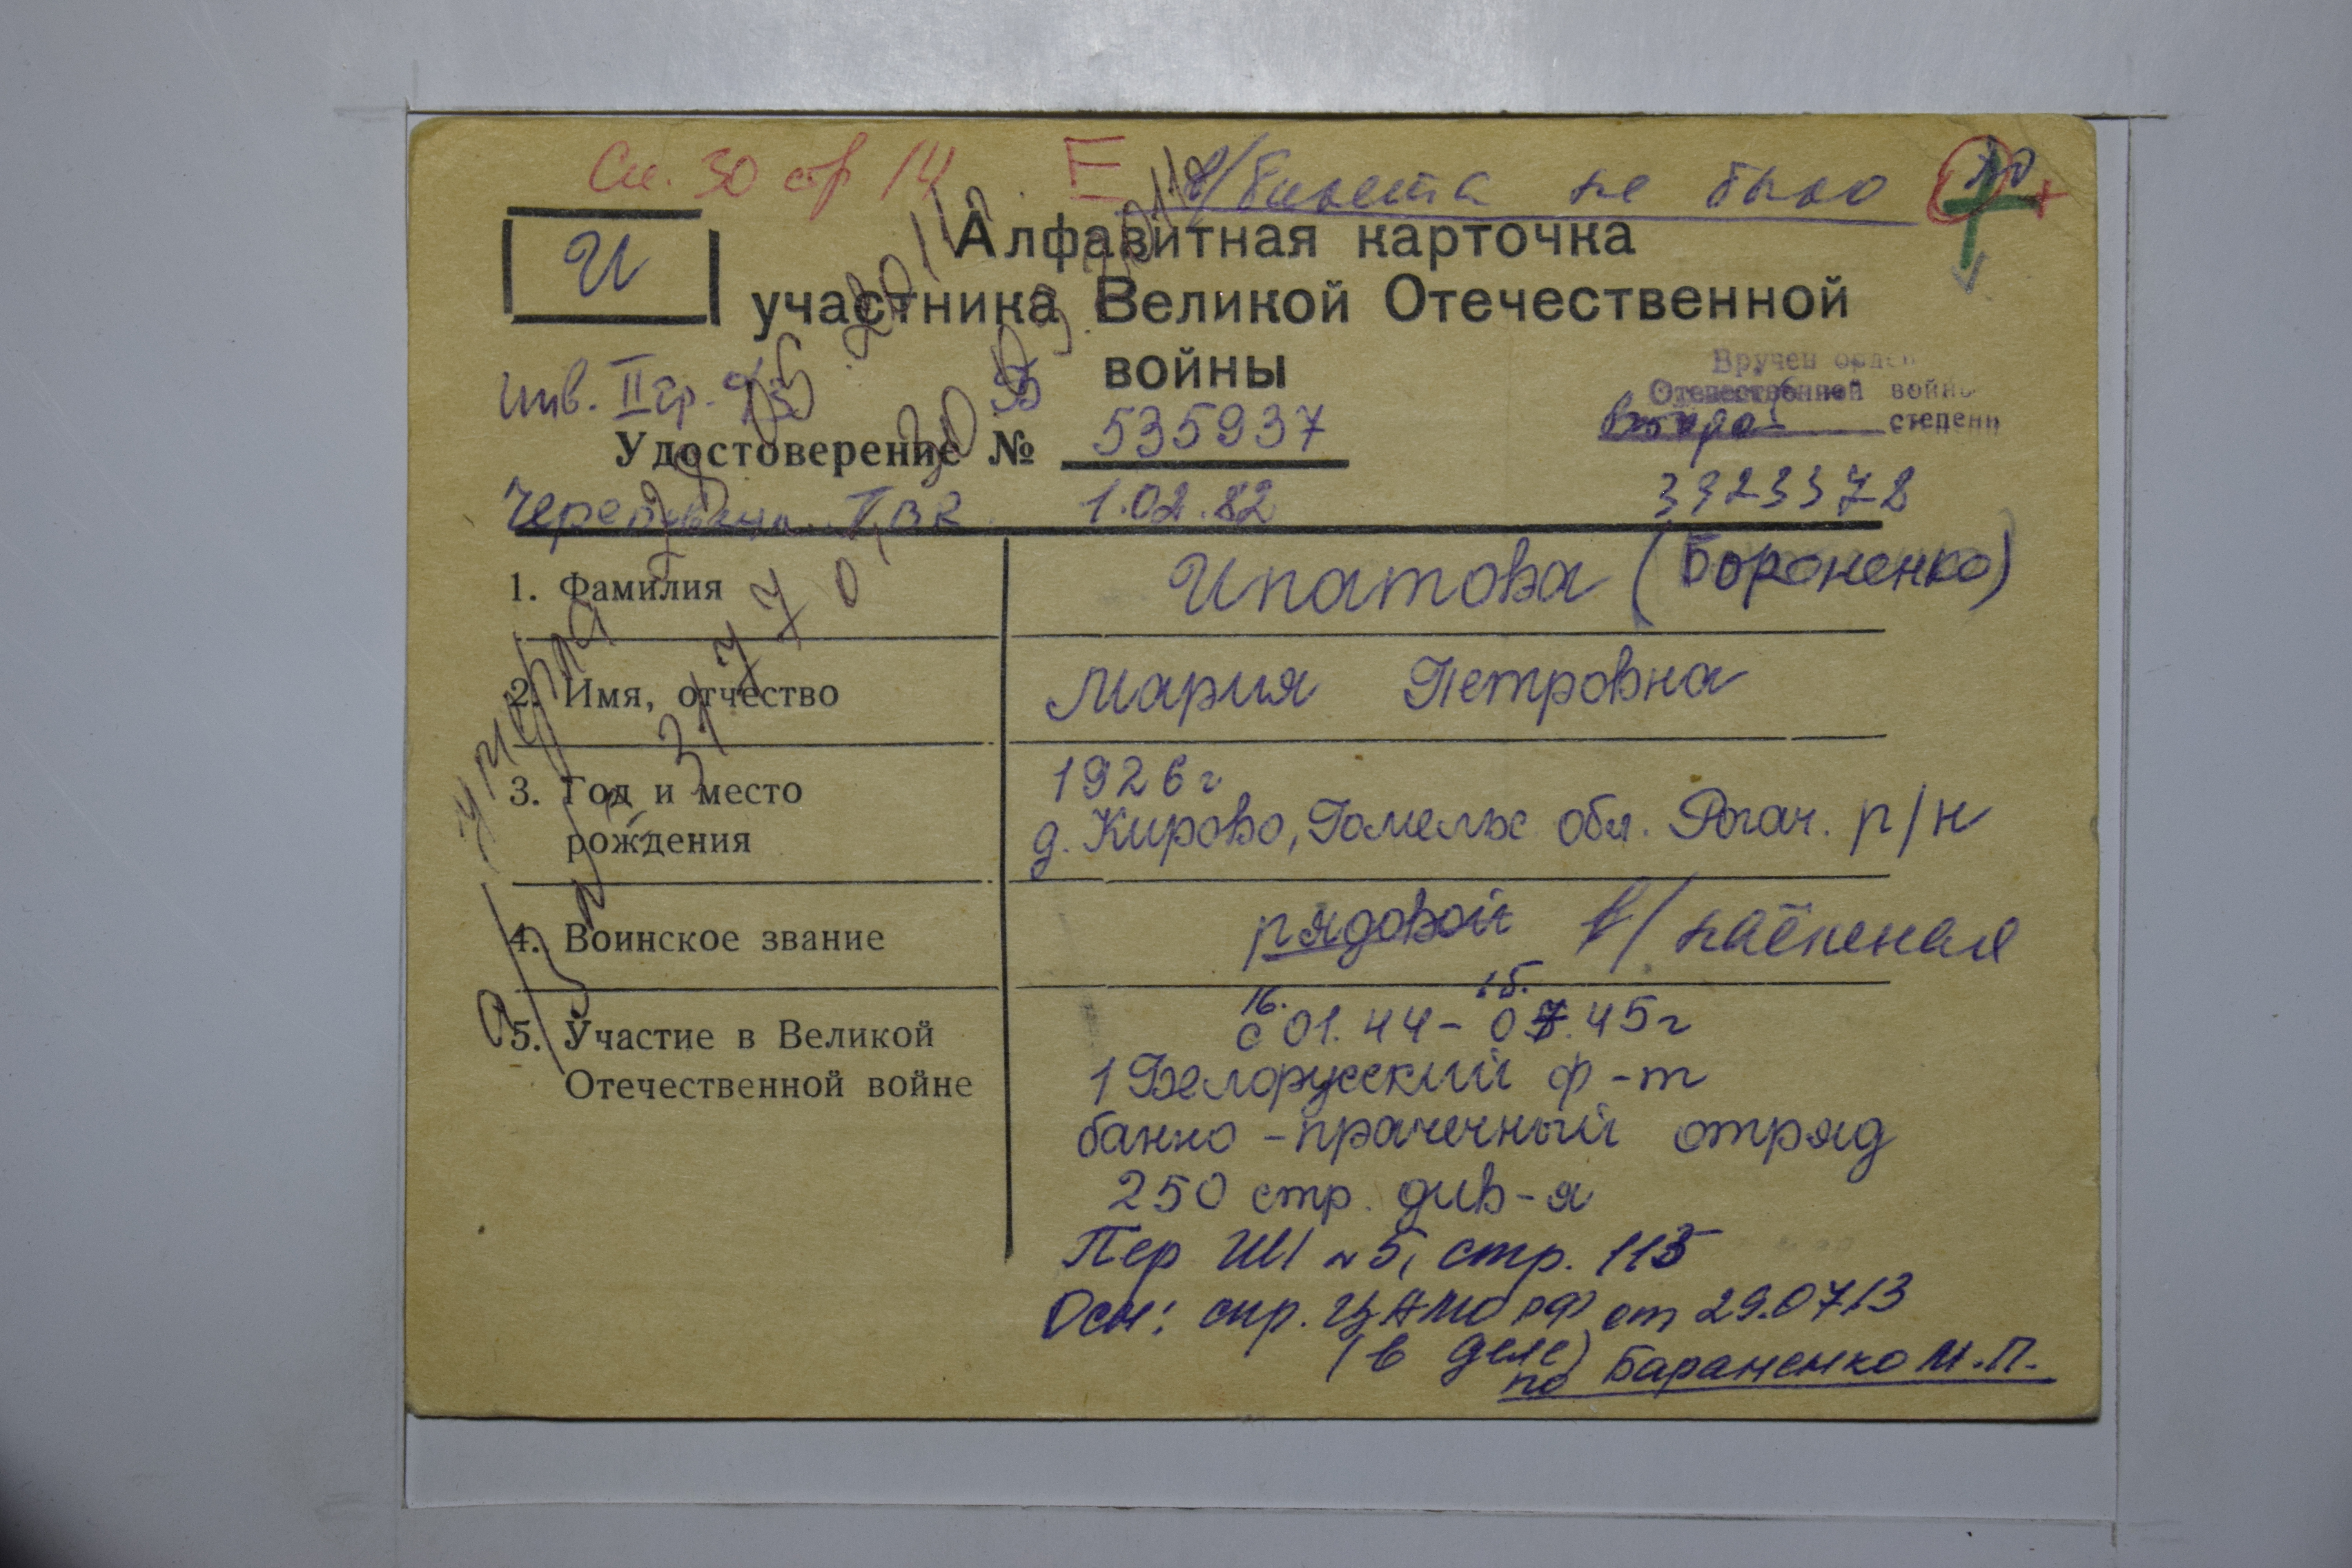 Сп. 30 стр 14 Е в/билета не было
И
Алфавитная карточка
участника Великой Отечественной
войны
инв. II гр.
Вручен орден
Отечественной войны
степени
Удостоверение № 535937
1.02.82
3323378
1. Фамилия Ипатова (Бороненко)
2. Имя, отчество Мария Петровна
3. Год и место рождения 1926 г
д. Кирово, Гомельс обл. Рогач. р/н
4. Воинское звание рядовой в/наёмная
5. Участие в Великой Отечественной войне
16. 15.
с 01.44 - 07.45 г
1 Белорусский ф-т
банно-прачечный отряд
250 стр. див-я
стр. 115
Осн: спр. ЦАМО РФ от 29.07.13
(в деле)
по Бараненко М.П.
умерла